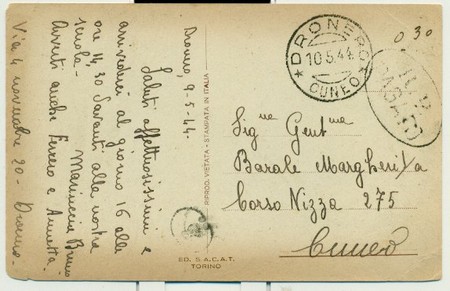 Dronero, 9-5-44.
Saluti affettuosissimi e
arrivederci al giorno 16 alle
ore 14,30 davanti alla nostra
scuola.
Mariuccia Bruno
Avverti anche Ferrero e Annetta
Via 4 novembre 20 - Dronero.
RIPROD. VIETATA - STAMPATA IN ITALIA
ED. S.A.C.A.T.
TORINO
DRONERO
10.5.44
CUNEO
0 30
Sig na Gent ma
Barale Margherita
Corso Nizza 275
Cuneo